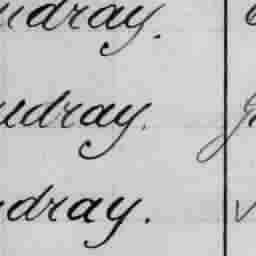 udray.
udray.
dray.